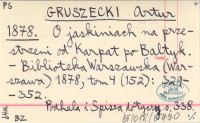 PS
GRUSZECKI Artur
1878. O jaskiniach na prze-
strzeni od Karpat po Bałtyk.
- Biblioteka Warszawska (War-
szawa) 1878, tom 4 (152): 329-
-352.
Podhala i Spisza dotyczą s. 338.
BZ